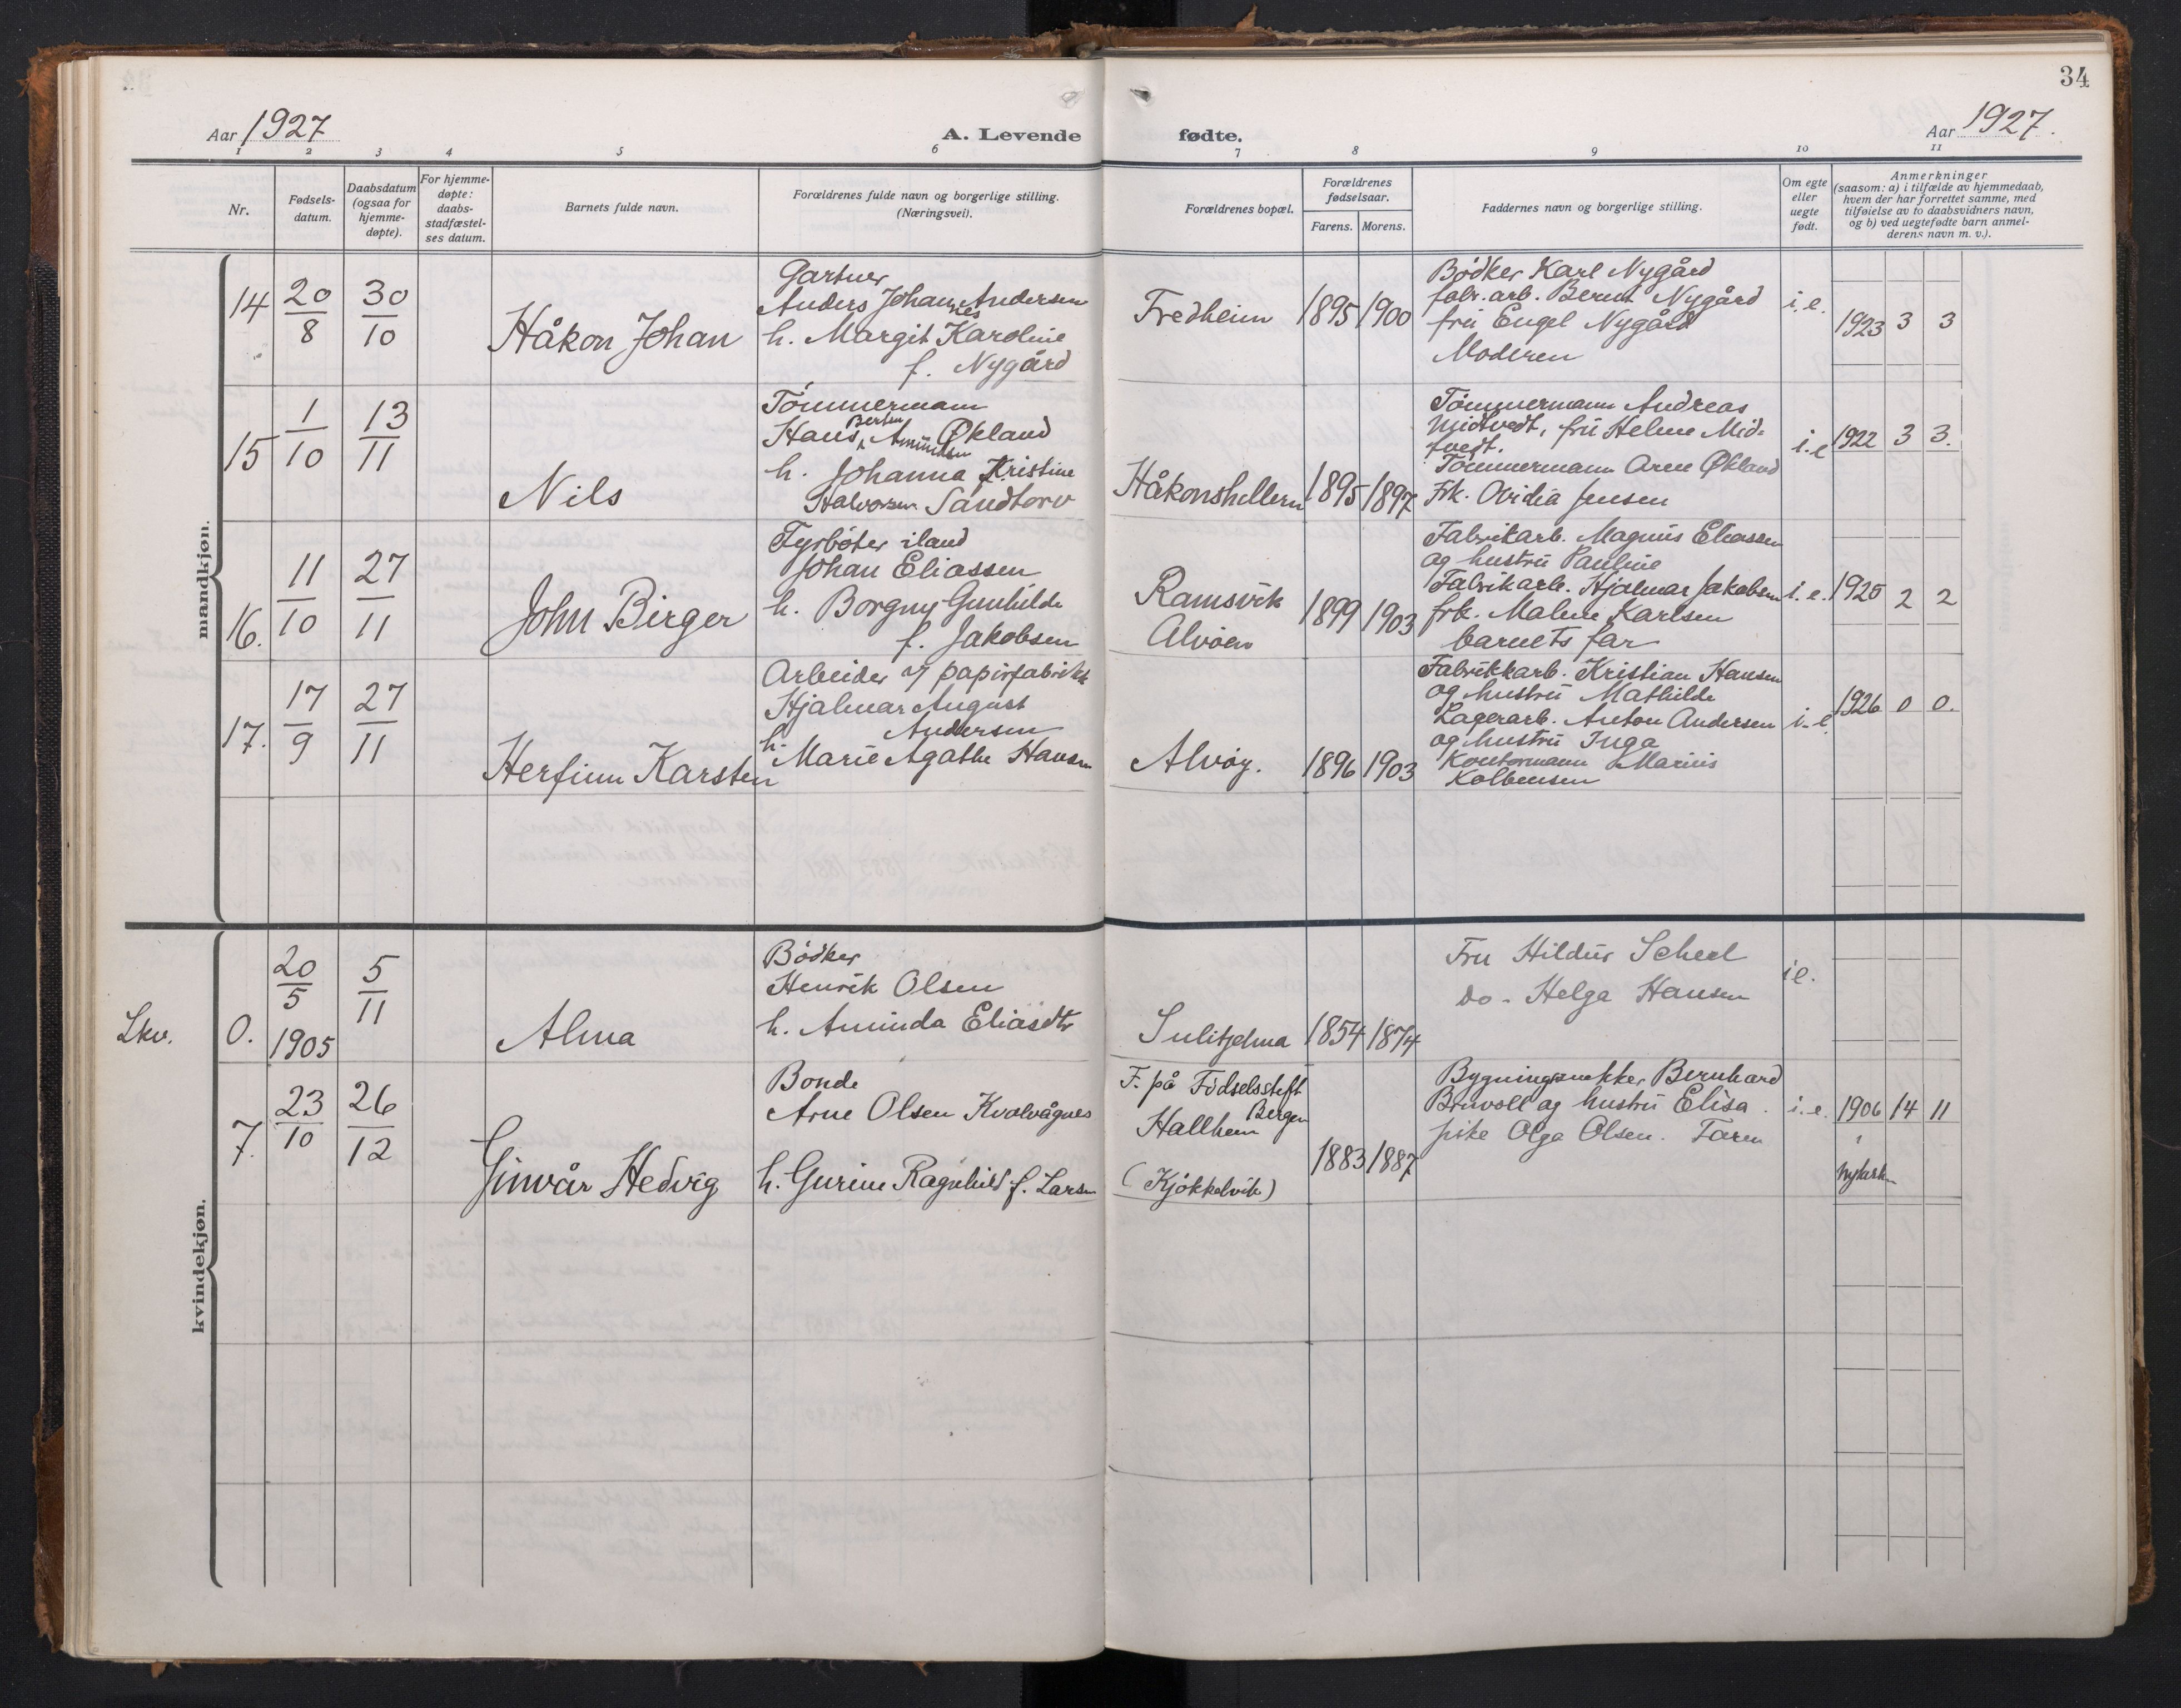 34
Aar 1927
A. Levende fødte.
Aar 1927.
1 2 3 4 5 6 7 8 9 10 11
Nr.
Fødsels-
datum.
Daabsdatum
(ogsaa for
hjemme-
døpte).
For hjemme-
døpte:
daabs-
stadfæstel-
ses datum.
Barnets fulde navn.
Forældrenes fulde navn og borgerlige stilling.
(Næringsvei).
Forældrenes bopæl.
Forældrenes
fødselsaar.
Farens. Morens.
Faddernes navn og borgerlige stilling.
Om egte
eller
uegte
født.
Anmerkninger
(saasom: a) i tilfælde av hjemmedaab,
hvem der har forrettet samme, med
tilføielse av to daabsvidners navn,
og b) ved uegtefødte barn anmel-
derens navn m. v.).
mandkjøn.
14
20/8
30/10
Håkon Johan
Gartner
Anders Johannes Andersen
h. Margit Karoline
f. Nygård
Fredheim
1895 1900
Bödker Karl Nygård
fabr. arb. Berent Nygård
frü Engel Nygård
Moderen
i. e.
1923 3 3
15
1/10
13/11
Nils
Tömmermann
Hans Berten Amundsen Økland
h. Johanna Kristine
Halvorsen Sandtorv
Håkonshellern
1895 1897
Tömmermann Andreas
Midtvedt, frü Helene Mid-
tvedt.
Tömmermann Arne Økland
Frk. Ovidia Jensen
i. e
1922 3 3.
16.
11/10
27/11
John Birger
Fyrböter iland
Johan Eliassen
h. Borgny Gunhilde
f. Jakobsen
Ramsvik
Alvöen
1899 1903
Fabrikarb. Magnus Eliassen
og hustrü Pauline
Fabrikarb. Hjalmar Jakobsen
frk. Malene Karlsen
barnets far
i. e.
1925 2 2
17.
17/9
27/11
Herfinn Karsten
Arbeider v/ papirfabrikk
Hjalmar August
Andersen
h. Marie Agathe Hansen
Alvøy.
1896 1903
Fabrikkarb. Kristian Hansen
og hustrü Mathilde
Lagerarb. Anton Andersen
og hustrü Inga
Kontormann Marius
Kolbensen
i. e.
1926 0 0.
kvindekjøn.
Lkv.
0.
20/5
1905
5/11
Alma
Bödker
Henrik Olsen
h. Aminda Eliasdtr
Sulitjelma
1854 1874
Fru Hildür Scheel
do. Helga Hansen
i e.
7.
23/10
26/12
Gunvår Hedvig
Bonde
Arne Olsen Kvalvågnes
h. Gurine Ragnhild f. Larsen
F. på Födselsstift.
Bergen
Hallheim
(Kjökkelvik)
1883 1887
Bygningssnekker Bernhard
Bruvoll og hustrü Elisa.
pike Olga Olsen. Faren
i. e.
1906 14 11